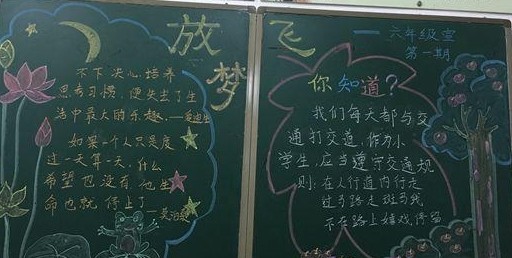 放飞梦
六年级室
第一期
不下决心培养
思考习惯，便失去了生
活中最大的乐趣。——爱迪生
如果一个人只是度
过一天算一天，什么
希望也没有，他生
命也就停止了
你知道？
我们每天都与交
通打交道，作为小
学生，应当遵守交通规
则：在人行道内行走
过马路走斑马线
不在路上嬉戏，停留